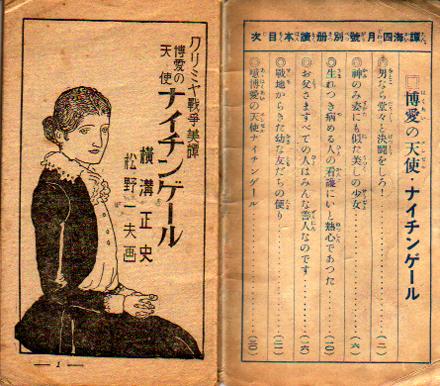 譚海四月號別册讀本目次
博愛の天使・ナイチンゲール
男なら堂々と決闘をしろ!…………(二)
神のみ姿にも似た美しの少女…………(六)
生れつき病める人の看護にいと熱心であつた…………(一〇)
お父さますべての人はみんな善人なのです…………(一六)
戰地からきた幼な友だちの便り…………(二一)
噫博愛の天使ナイチンゲール…………(三〇)
クリミヤ戰爭美譚
博愛の
天使
ナイチンゲール
横溝正史
松野一夫画
— 1 —